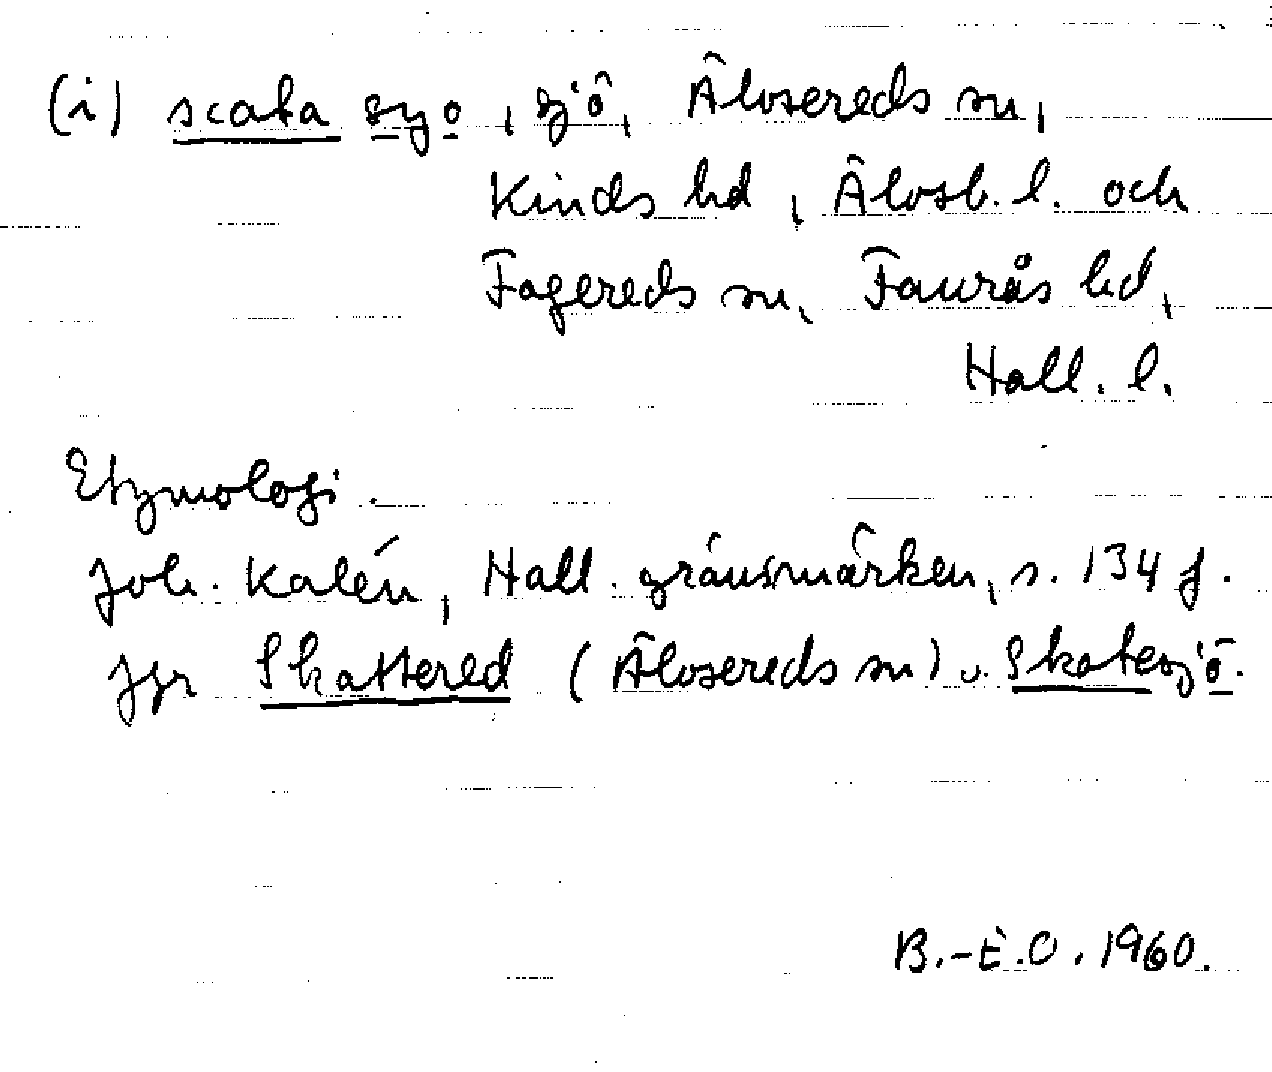 (i) scata syo, sjö, Älvsereds sn,
Kinds hd, Älvsb. l. och
Fagereds sn, Faurås hd,
Hall. l.
Etymologi.
Joh. Kalén, Hall. gränsmärken, s. 134 f.
Jfr Skattered (Älvsereds sn) o. Skatesjö.
B.-E.O. 1960.